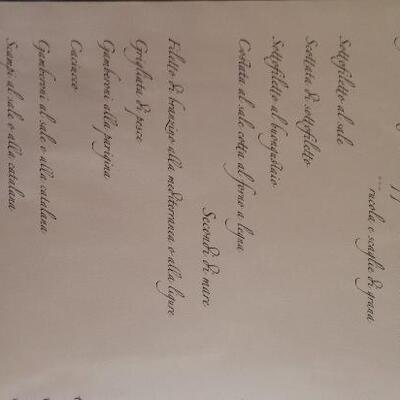 ... rucola e scaglie di grana
Sottofiletto al sale
Scottata di sottofiletto
Sottofiletto al buongustaio
Costata al sale cotta al forno a legna
Secondi di mare
Filetto di branzino alla mediterranea o alla ligure
Grigliata di pesce
Gamberoni alla parigina
Caciucco
Gamberoni al sale o alla catalana
Scampi al sale o alla catalana